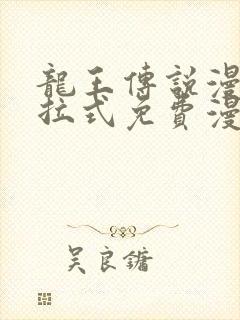 龍王傳說漫
拉式免費漫
吴良鏞